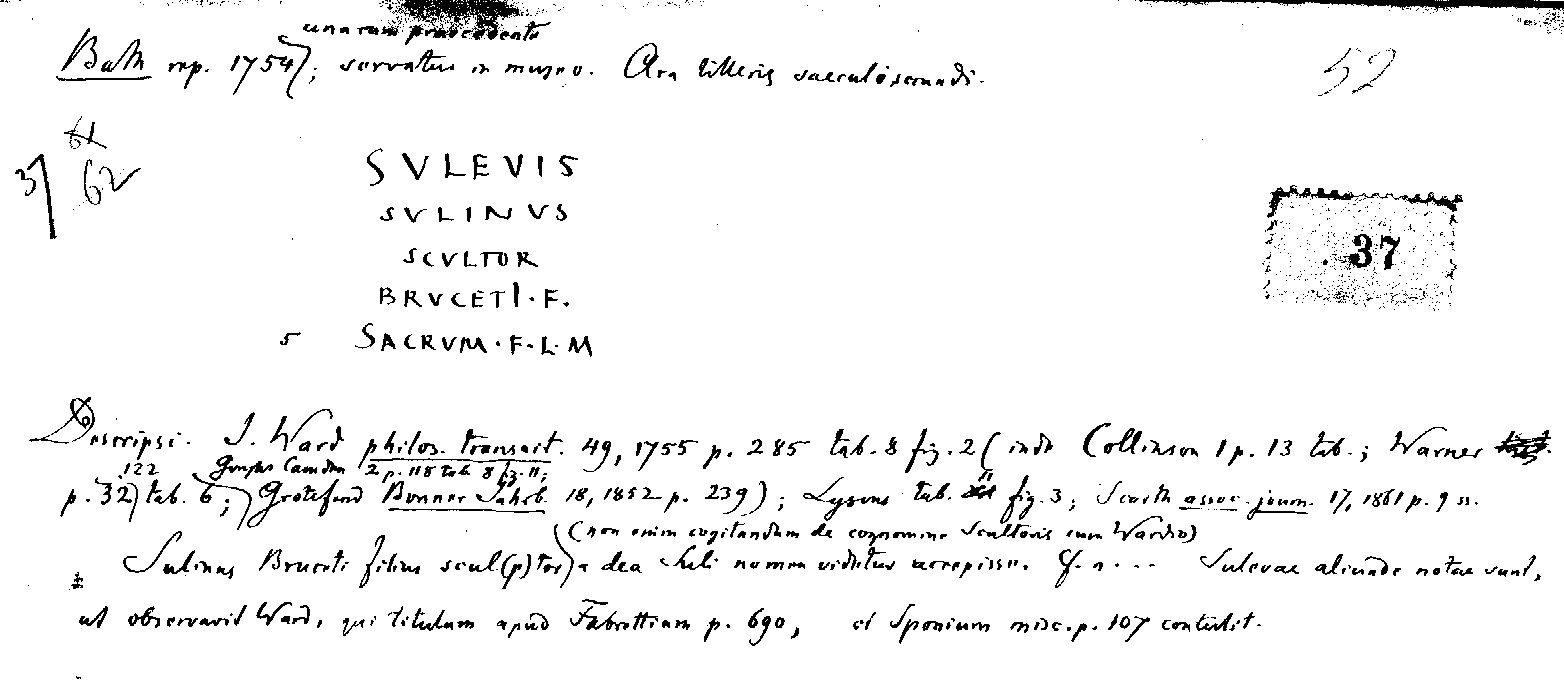 una cum praecedente
Bath rep. 1754; servatur in museo. Ara litteris saeculi secundi.
52
61
37 62
SVLEVIS
SVLINVS
SCVLTOR
BRVCETI·F.
5 SACRVM·F·L·M
37
Descripsi. J. Ward philos. transact. 49, 1755 p. 285 tab. 8 fig. 2 (inde Collinson 1 p. 13 tab.; Warner
122 Goughs Camden 2 p. 118 tab. 8 fig. 11;
p. 32) tab. 6; Grotefend Bonner Jahrb. 18, 1852 p. 239); Lysons tab. 11 fig. 3; Scarth assoc. journ. 17, 1861 p. 9 ss.
(non enim cogitandum de cognomine Scultoris cum Wardio)
Sulinus Bruceti filius scul(p)tor a dea Suli nomen videtur accepisse. Cf. n . . . . Sulevae aliunde notae sunt,
ut observavit Ward, qui titulum apud Fabrettium p. 690, et Sponium misc. p. 107 contulit.